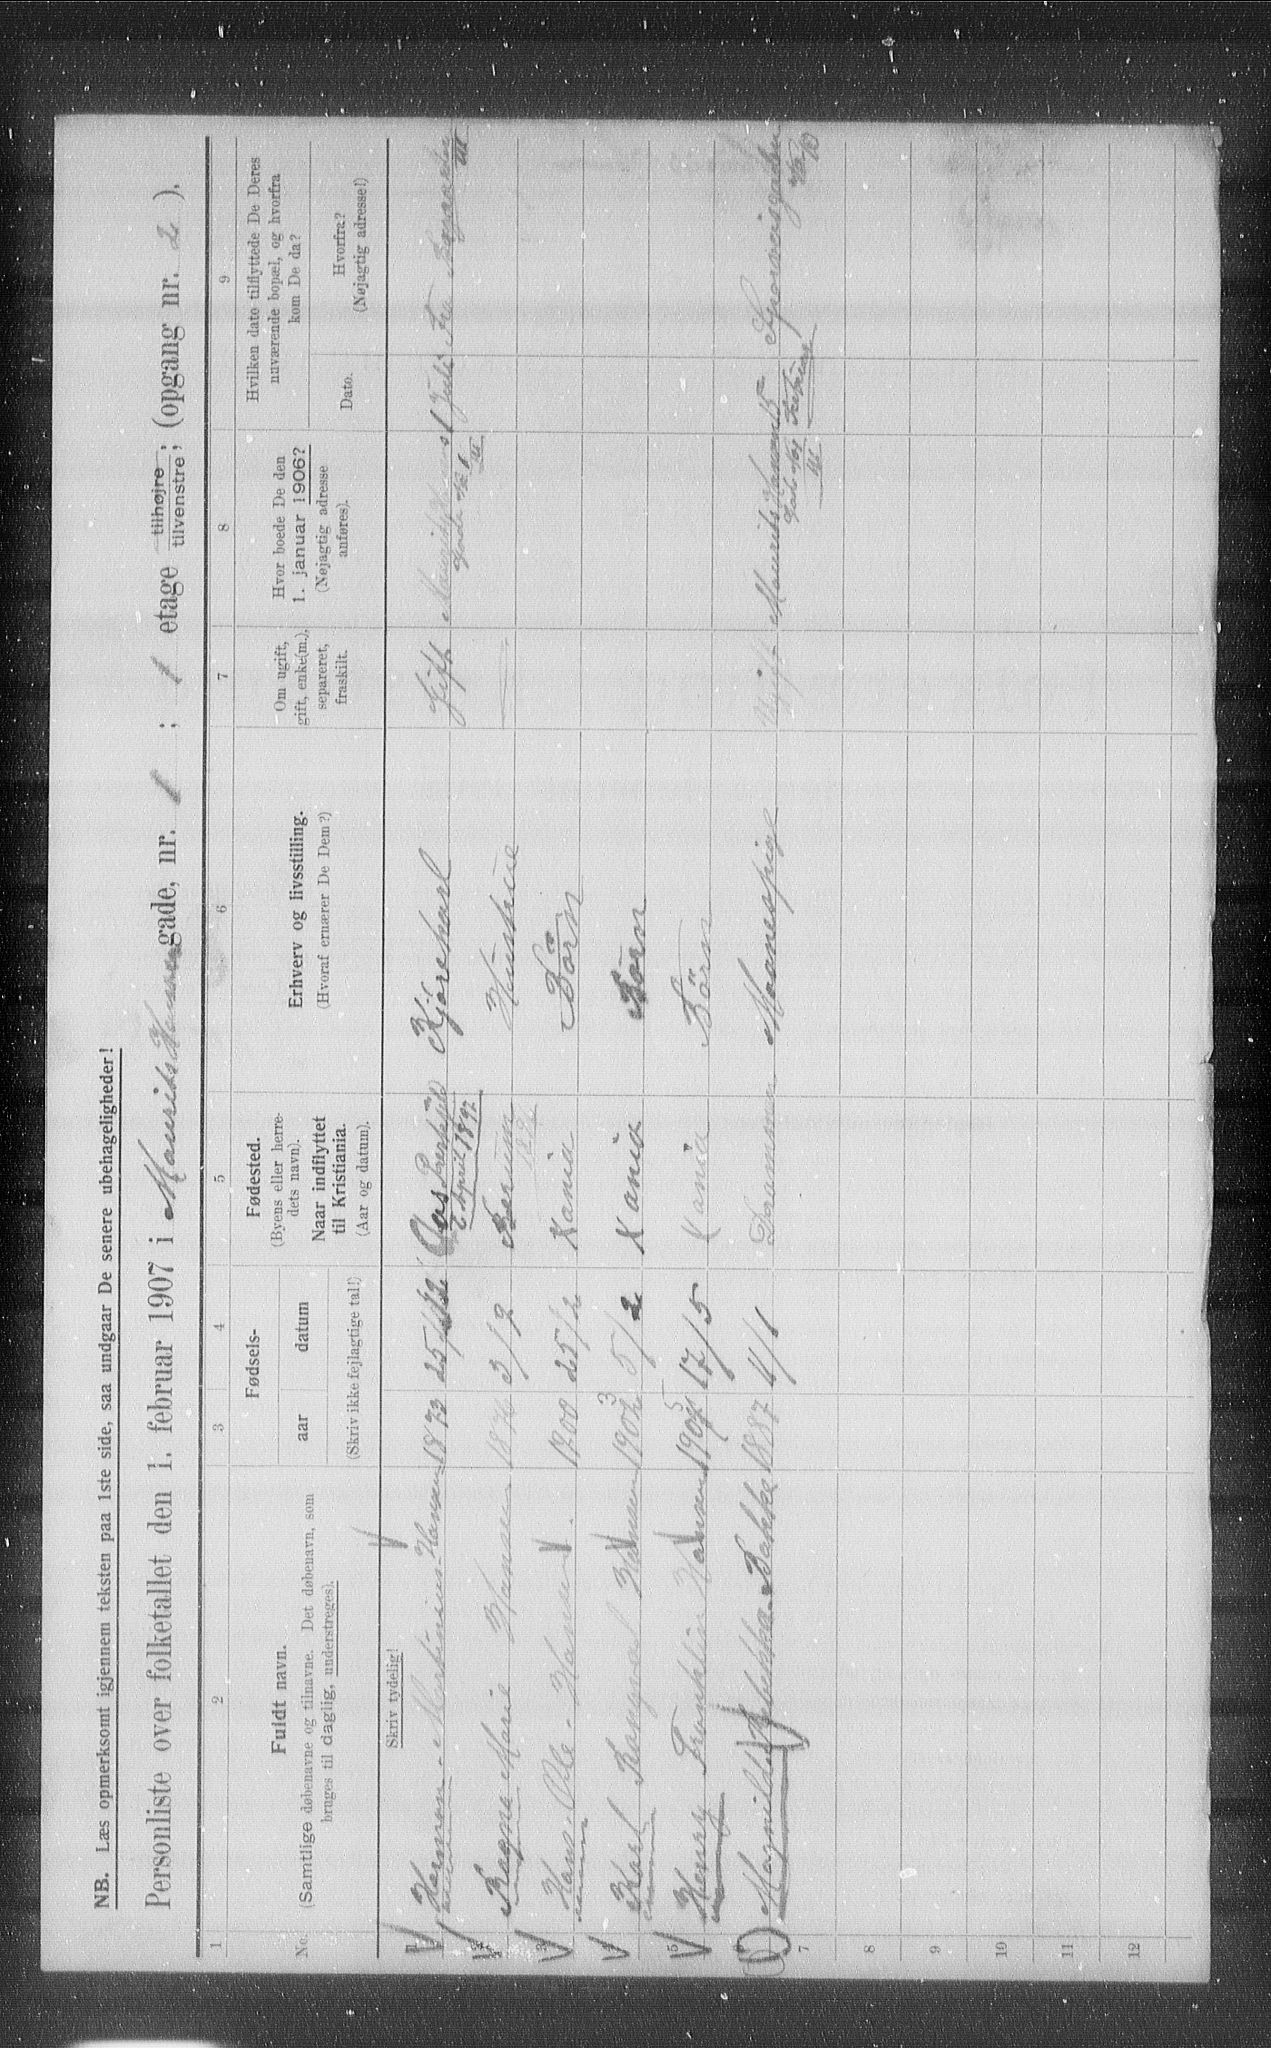 NB. Læs opmerksomt igjennem teksten paa 1ste side, saa undgaar De senere ubehageligheder!
Personliste over folketallet den 1. februar 1907 i Maurits Hansens gade, nr. 1 ; 1 etage tilhøjre / tilvenstre ; (opgang nr. 2 ).
1 2 3 4 5 6 7 8 9
No. Fuldt navn.
(Samtlige døbenavne og tilnavne. Det døbenavn, som
bruges til daglig, understreges).
Fødsels-
aar datum
(Skriv ikke fejlagtige tal!)
Fødested.
(Byens eller herre-
dets navn).
Naar indflyttet
til Kristiania.
(Aar og datum).
Erhverv og livsstilling.
(Hvoraf ernærer De Dem?)
Om ugift,
gift, enke(m.),
separeret,
fraskilt.
Hvor boede De den
1. januar 1906?
(Nøjagtig adresse
anføres).
Hvilken dato tilflyttede De Deres
nuværende bopæl, og hvorfra
kom De da?
Dato. Hvorfra?
(Nøjagtig adresse!)
Skriv tydelig!
1 Herman Martinius Hansen 1873 25/12 Aas April 1897 Kjørekarl Gift
2 Ragna Marie Hansen 1876 3/9 Berum Hustrue
3 Hans Ole Hansen. 1900 25/2 Kania Börn
4 Karl Rangval Hansen 1903 5/2 Kania Börn
5 Henry Franklin Hansen 1905 17/5 Kania Börn
6 Magnilde Rebekka Bakke 1887 4/1 Drammen Maanespige Ugift Maurits Hansens
7
8
9
10
11
12